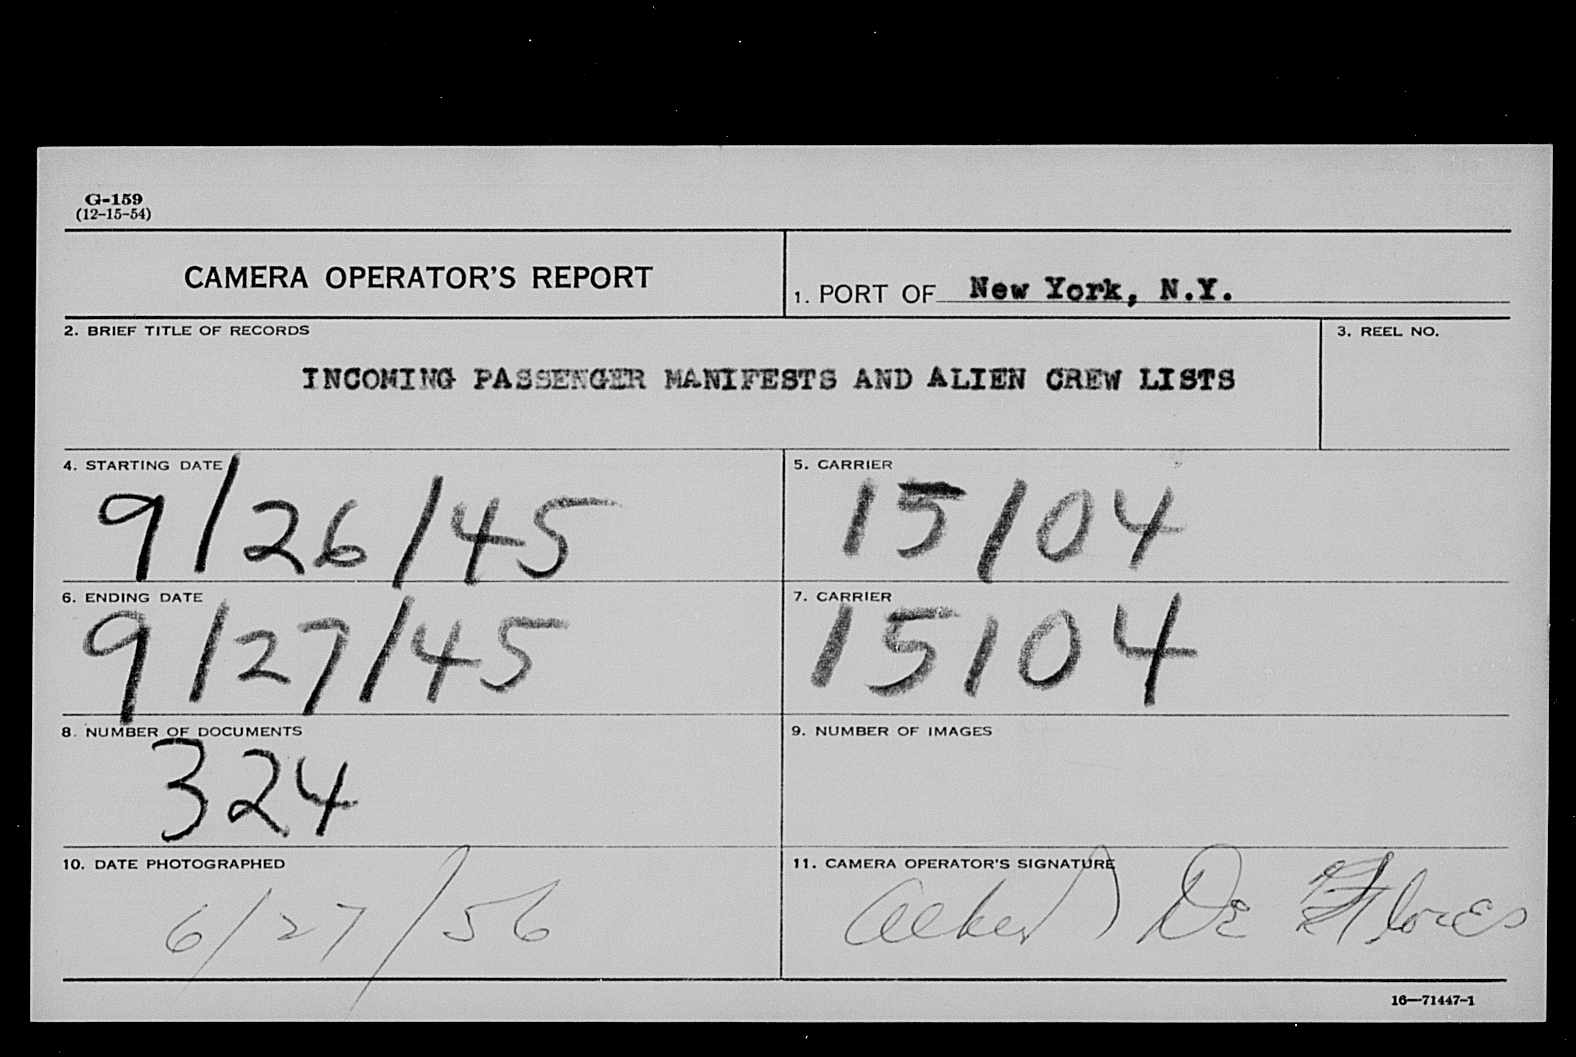 G-159
(12-15-54)
CAMERA OPERATOR'S REPORT
1. PORT OF New York, N.Y.
2. BRIEF TITLE OF RECORDS
3. REEL NO.
INCOMING PASSENGER MANIFESTS AND ALIEN CREW LISTS
4. STARTING DATE
9/26/45
5. CARRIER
15104
6. ENDING DATE
9/27/45
7. CARRIER
15104
8. NUMBER OF DOCUMENTS
324
9. NUMBER OF IMAGES
10. DATE PHOTOGRAPHED
6/27/56
11. CAMERA OPERATOR'S SIGNATURE
Albert De Flores
16—71447-1